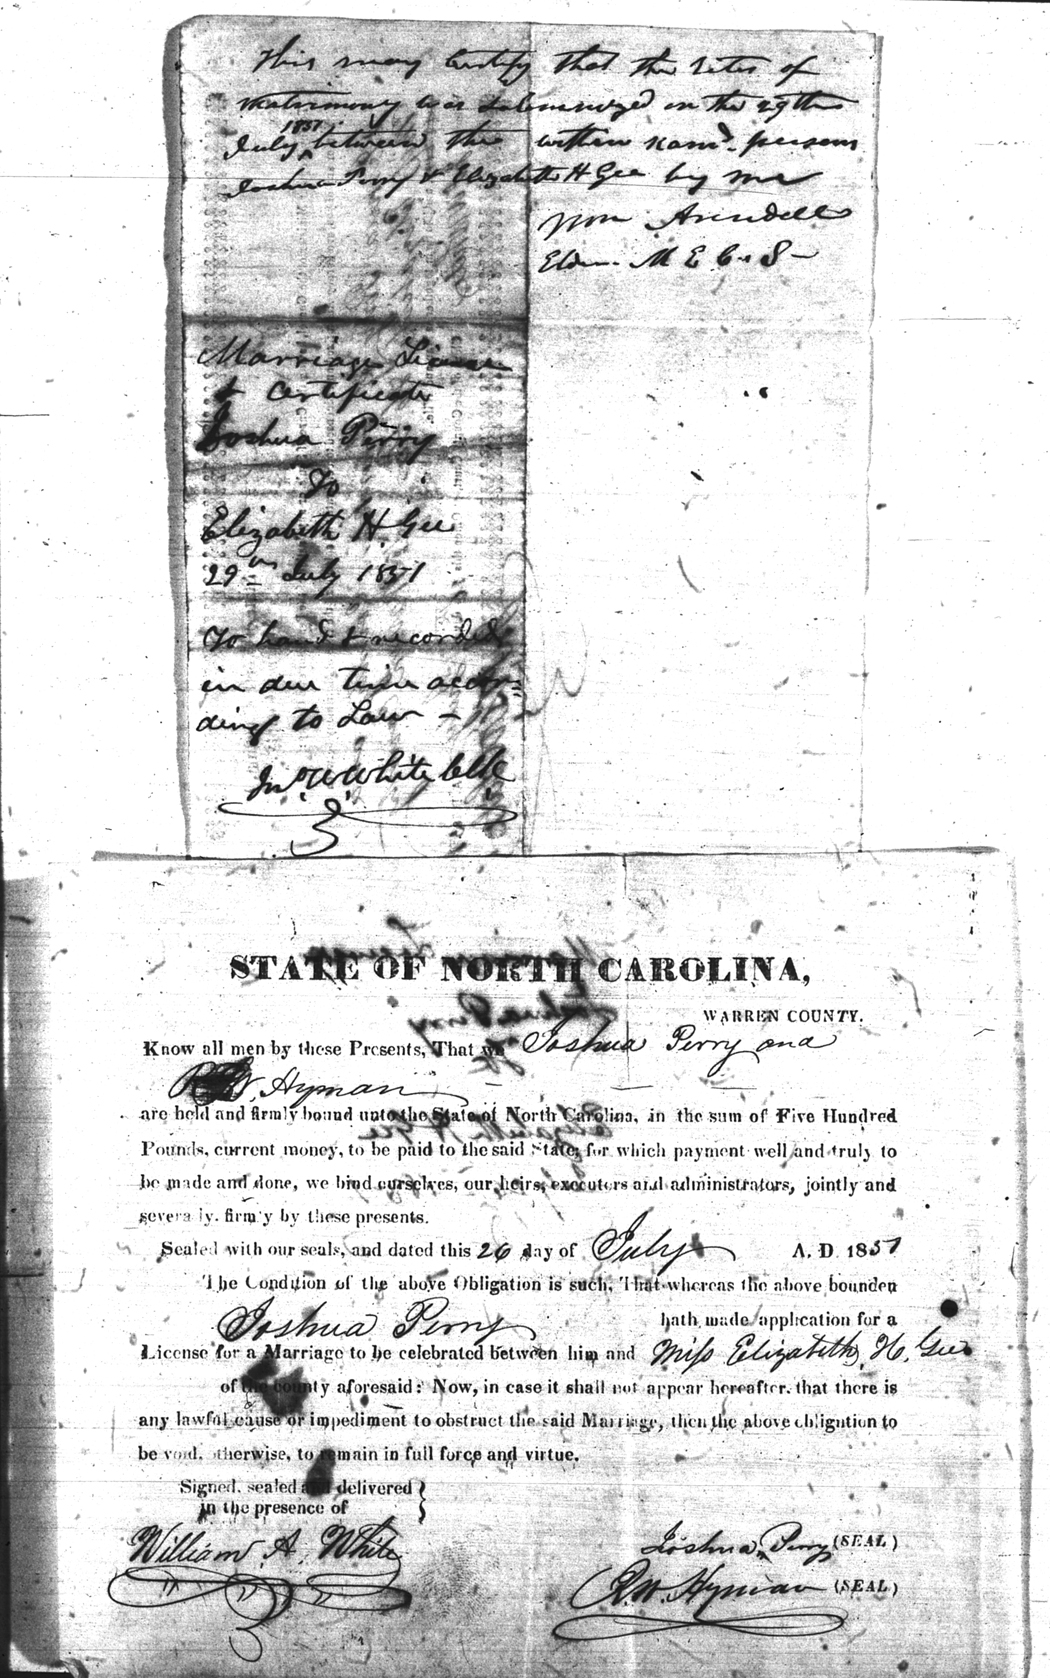 This may Certify that the rites of
matrimony was Solemnized on the 29th
July 1851 between the within nam'd persons
Joshua Perry & Elizabeth H Gee by me
Wm Arendell
Elder M E C. S
Marriage License
& Certificate
Joshua Perry
To
Elizabeth H. Gee
29th July 1851
To hand & recorded
in due time accor=
ding to Law -
Jno W. White Clk
STATE OF NORTH CAROLINA,
WARREN COUNTY.
Know all men by these Presents, That we Joshua Perry and
R W. Hyman
are held and firmly bound unto the State of North Carolina, in the sum of Five Hundred
Pounds, current money, to be paid to the said State, for which payment well and truly to
be made and done, we bind ourselves, our heirs, executors and administrators, jointly and
severally, firmly by these presents.
Sealed with our seals, and dated this 26 day of July A. D. 1851
The Condition of the above Obligation is such, That whereas the above bounden
Joshua Perry hath made application for a
License for a Marriage to be celebrated between him and Miss Elizabeth H. Gee
of the county aforesaid: Now, in case it shall not appear hereafter, that there is
any lawful cause or impediment to obstruct the said Marriage, then the above obligation to
be void, otherwise, to remain in full force and virtue.
Signed, sealed and delivered
in the presence of
William A. White
Joshua Perry (SEAL)
R. W. Hyman (SEAL)